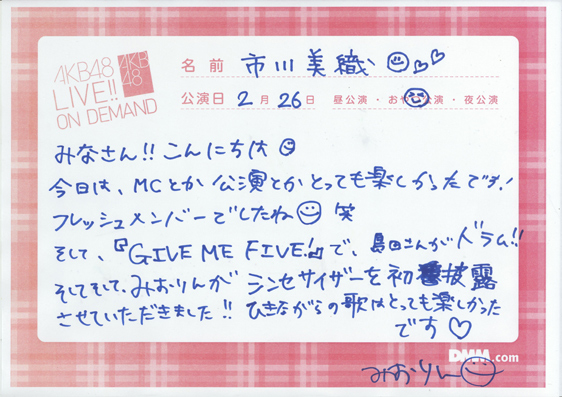 AKB48
LIVE!!
ON DEMAND
AKB
48
名前 市川美織
公演日 2月26日 昼公演・おやつ公演・夜公演
みなさん!! こんにちは
今日は、MCとか公演とかとっても楽しかったです!
フレッシュメンバーでしたね 笑
そして、『GIVE ME FIVE!』で、島田さんがドラム!!
そしてそして、みおりんがシンセサイザーを初披露
させていただきました!! ひきながらの歌はとっても楽しかった
です♡
DMM.com
みおりん